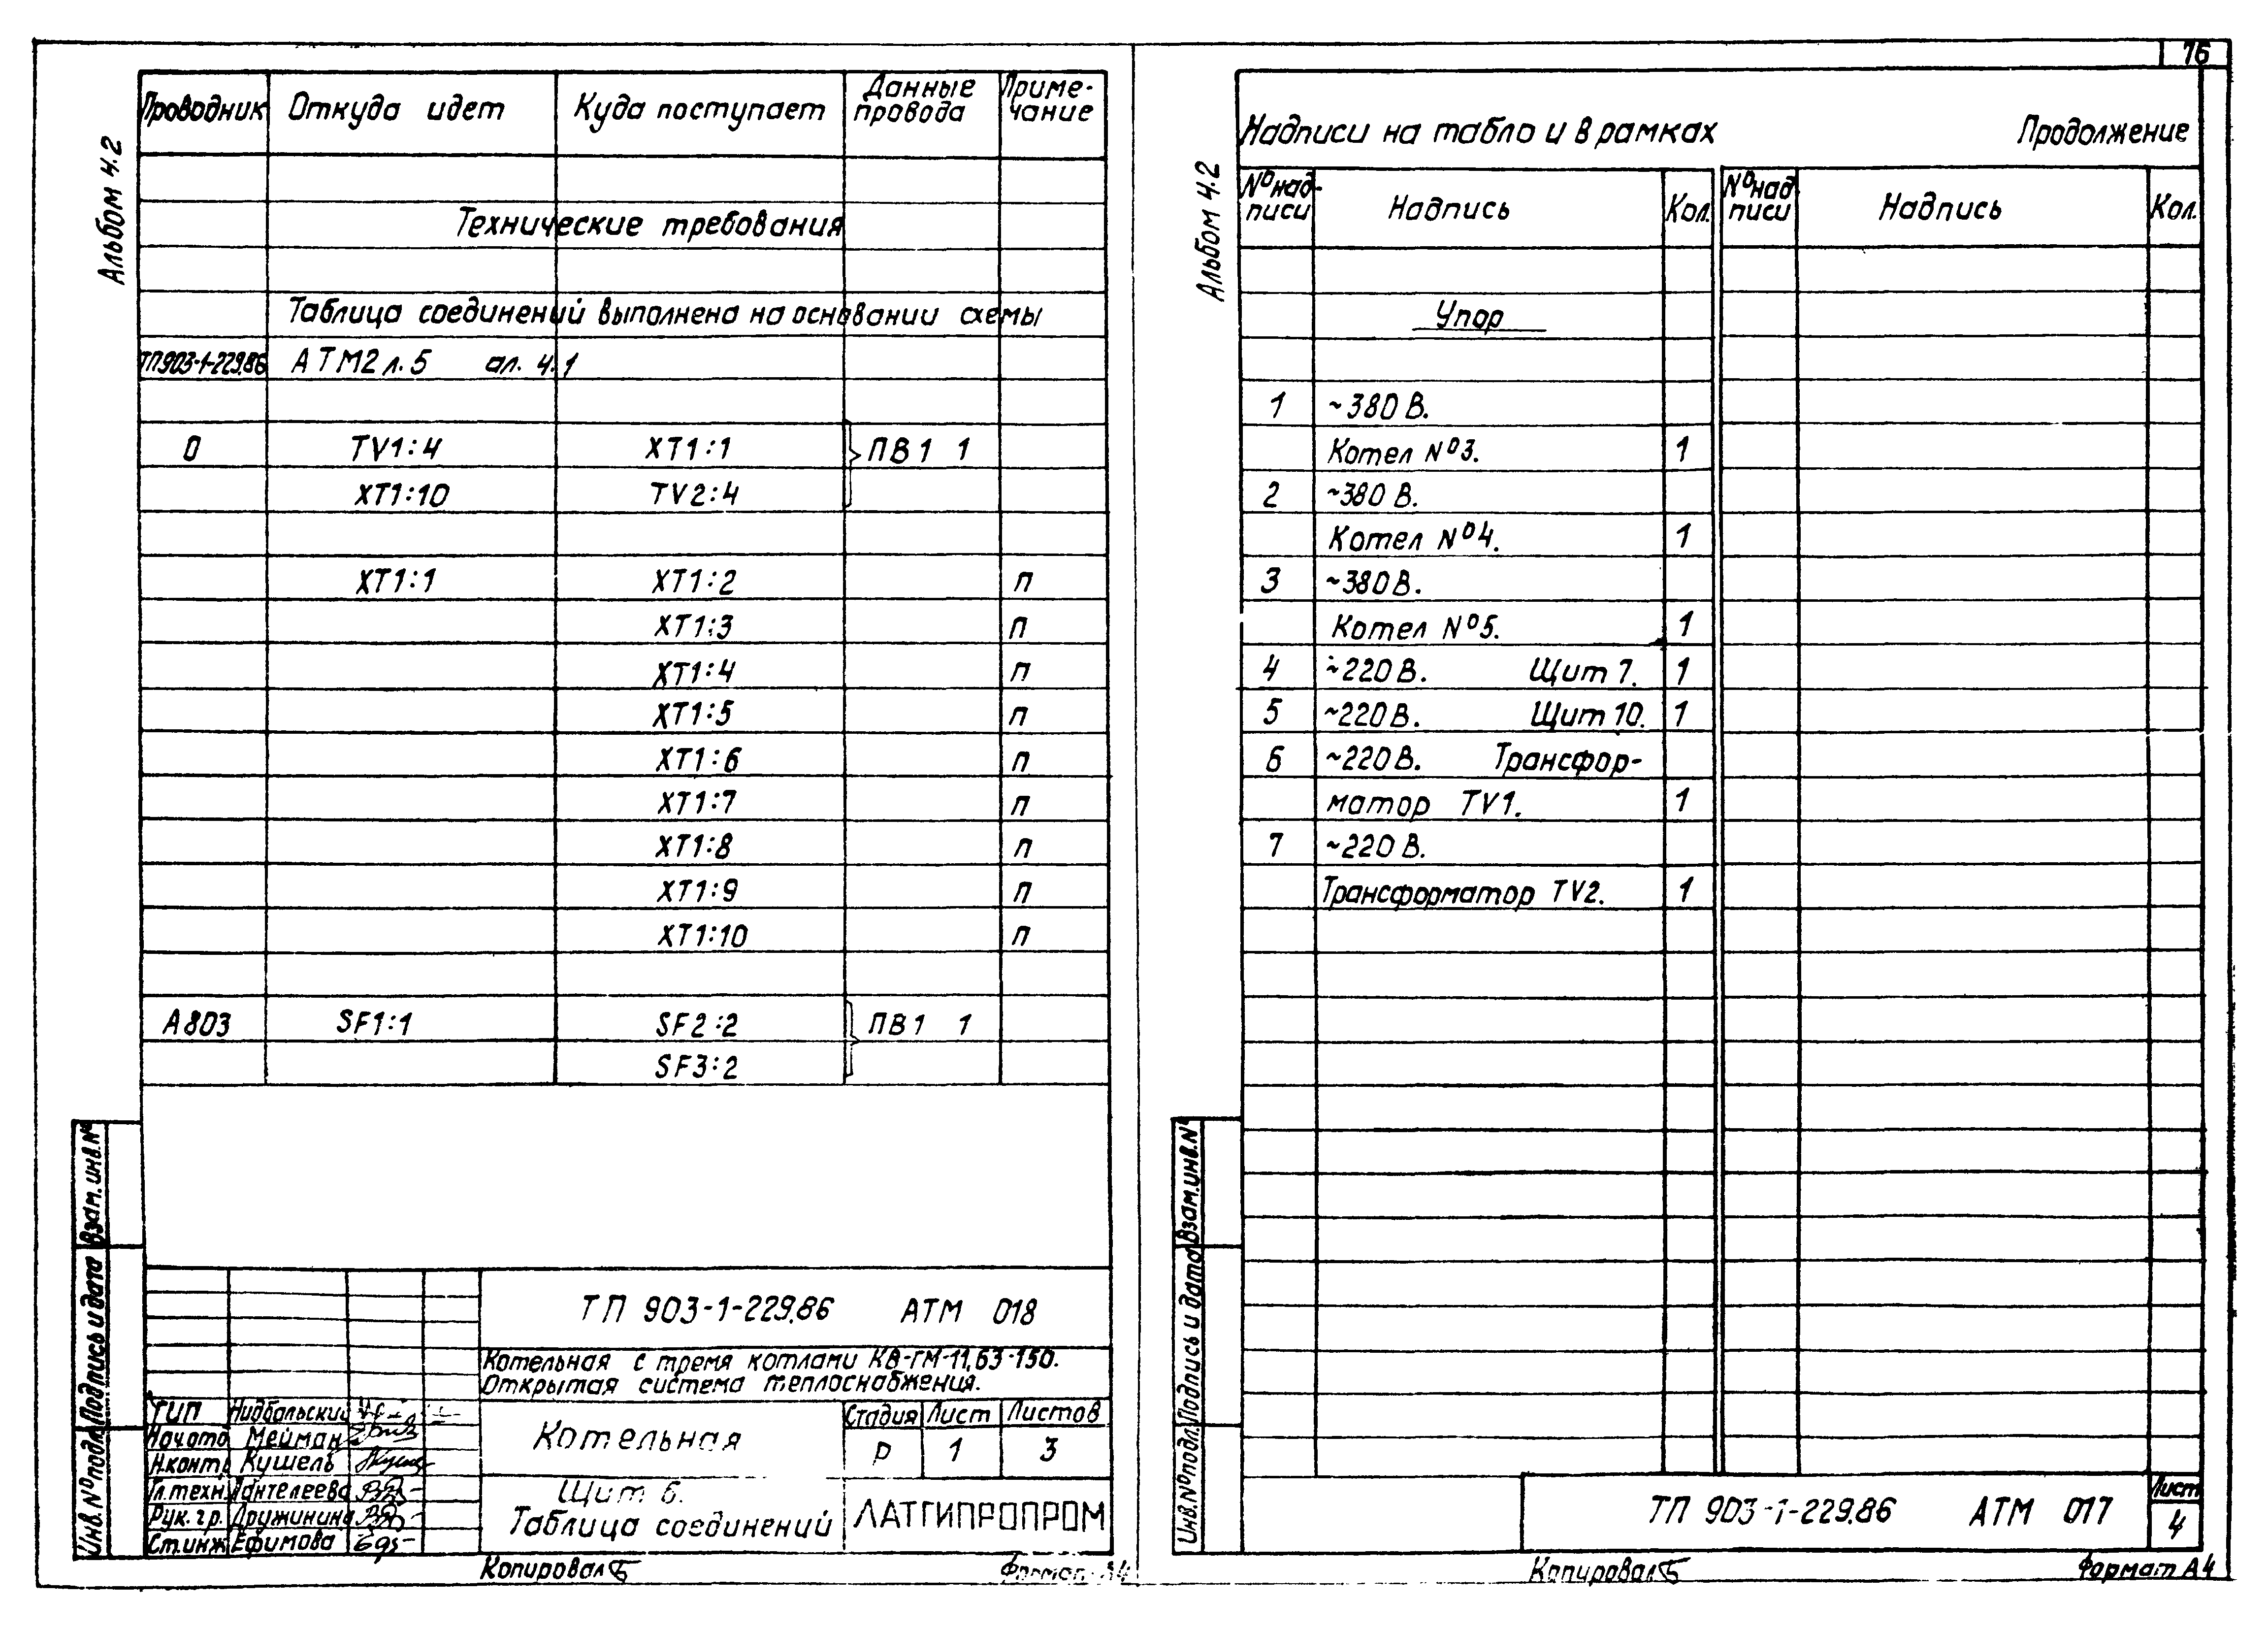 Альбом 4.2
Проводник Откуда идет Куда поступает Данные провода Приме-чание
Технические требования
Таблица соединений выполнена на основании схемы
ТП903-1-229.86 АТМ2 л.5 ал. 4.1
0 TV1:4 XT1:1 ПВ1 1
XT1:10 TV2:4
XT1:1 XT1:2 п
XT1:3 п
XT1:4 п
XT1:5 п
XT1:6 п
XT1:7 п
XT1:8 п
XT1:9 п
XT1:10 п
А803 SF1:1 SF2:2 ПВ1 1
SF3:2
Взам.инв.№
Подпись и дата
Инв.№ подл.
ТП 903-1-229.86 АТМ 018
Котельная с тремя котлами КВ-ГМ-11,63-150.
Открытая система теплоснабжения.
ГИП Нидбальский
Начото Мейман
Н.контр Кушель
Гл.техн. Пантелеева
Рук.гр. Дружинина
Ст.инж Ефимова
Котельная
Стадия Лист Листов
Р 1 3
Щит 6.
Таблица соединений
ЛАТГИПРОПРОМ
Копировал
Формат А4
76
Альбом 4.2
Надписи на табло и в рамках Продолжение
№ над-писи Надпись Кол. № над-писи Надпись Кол.
Упор
1 ~380 В.
Котел №3. 1
2 ~380 В.
Котел №4. 1
3 ~380 В.
Котел №5. 1
4 ~220 В. Щит 7. 1
5 ~220 В. Щит 10. 1
6 ~220 В. Трансфор-
матор TV1. 1
7 ~220 В.
Трансформатор TV2. 1
Взам.инв.№
Подпись и дата
Инв.№ подл.
ТП 903-1-229.86 АТМ 017
Лист
4
Копировал
Формат А4